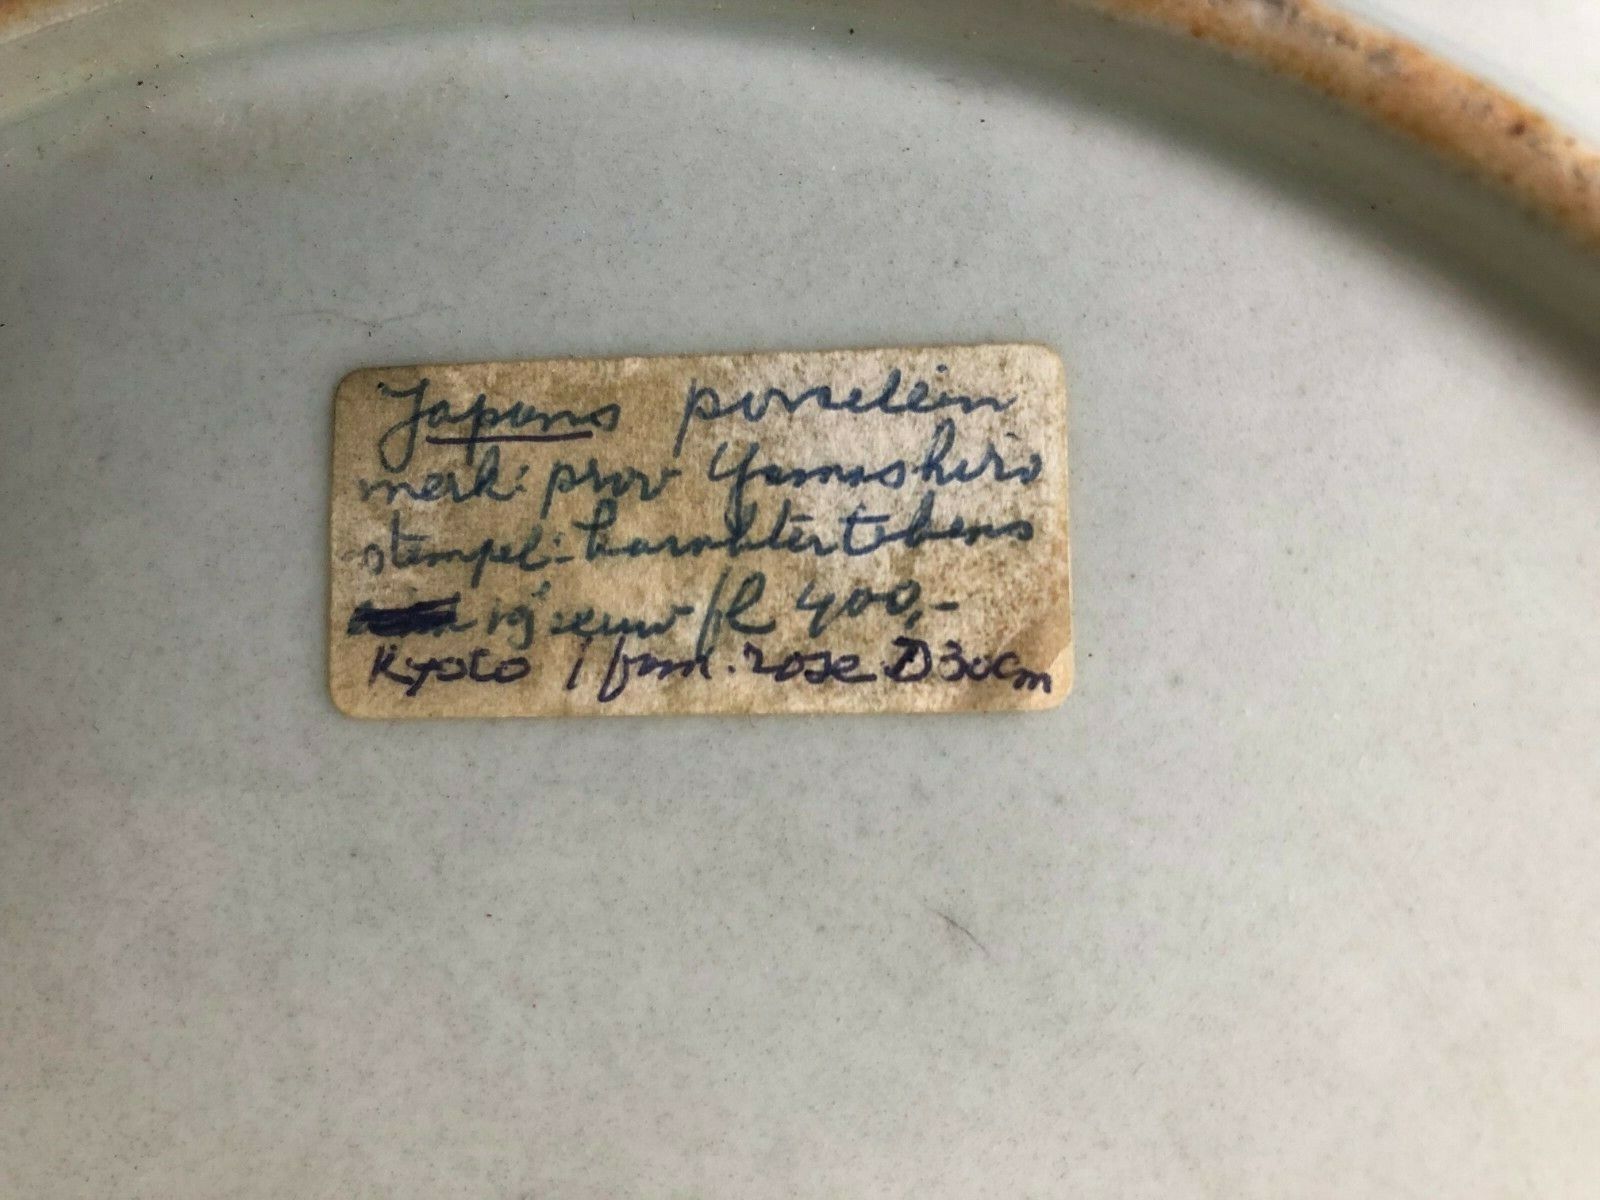 Japans porselein
merk: prov Yamashiro
stempel: karaktertekens
19e eeuw / fl 400,-
Kyoto / fam. rose D 30cm